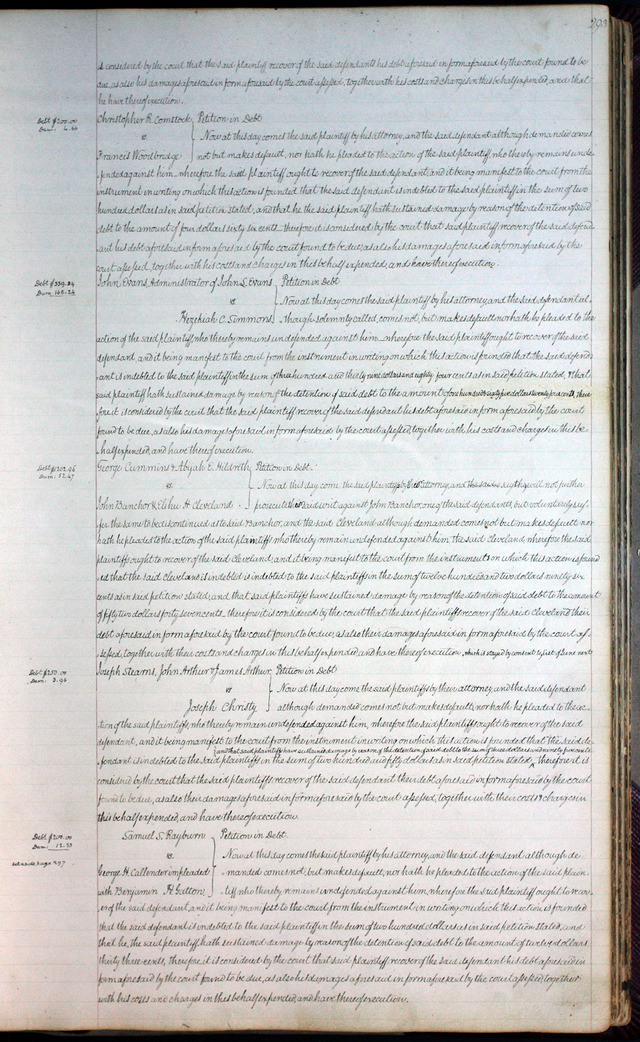 293
is considered by the court that the said plaintiff recover of the said defendants his debt aforesaid in form aforesaid by the court found to be
due, as also his damages aforesaid in form aforesaid by the court assessed, together with his costs and charges in this behalf expended, and that
he have thereof execution.
Debt $200.00
Dam. 4.66
Christopher R. Comstock Petition in Debt
vs Now at this day comes the said plaintiff by his attorney, and the said defendant although demanded comes
Francis Woodbridge not but makes default, nor hath he pleaded to the action of the said plaintiff, who thereby remains unde-
fended against him, wherefore the said plaintiff ought to recover of the said defendant and it being manifest to the court from the
instrument in writing on which this action is founded that the said defendant is indebted to the said plaintiff in the sum of two
hundred dollars as in said petition stated, and that he the said plaintiff hath sustained damage by reason of the detention of said
debt to the amount of four dollars sixty six cents therefore it is considered by the court that said plaintiff recover of the said defend-
ant his debt aforesaid in form aforesaid by the court found to be due, as also his damages aforesaid in form aforesaid by the
court assessed, together with his costs and charges in this behalf expended, and have thereof execution.
Debt $339.84
Dam. 165.24
John Evans Administrator of John S. Evans Petition in Debt
vs Now at this day comes the said plaintiff by his attorney and the said defendant al-
Hezekiah C. Simmons though solemnly called, comes not, but makes default nor hath he pleaded to the
action of the said plaintiff, who thereby remains undefended against him, wherefore the said plaintiff ought to recover of the said
defendant, and it being manifest to the court from the instrument in writing on which this action is founded that the said defend-
ant is indebted to the said plaintiff in the sum of three hundred and thirty nine dollars and eighty four cents as in said petition stated, & that
said plaintiff hath sustained damage by reason of the detention of said debt to the amount of one hundred sixty five dollars twenty four cents, there
fore it is considered by the court that the said plaintiff recover of the said defendant his debt aforesaid in form aforesaid by the court
found to be due, as also his damages aforesaid in form aforesaid by the court assessed together with his costs and charges in this be-
half expended, and have thereof execution.
Debt $1202.96
Dam. 52.47
George Cummins & Abijah E. Hildreth Petition in Debt.
vs Now at this day come the said plaintiffs by their attorney, and the said say they will not further
John Banchor & Elihu H. Cleveland prosecute their said writ against John Banchor, one of the said defendants, but voluntarily suf-
fer the same to be discontinued as to said Banchor, and the said Cleveland although demanded comes not but makes default nor
hath he pleaded to the action of the said plaintiffs who thereby remain undefended against him the said Cleveland, wherefore the said
plaintiffs ought to recover of the said Cleveland, and it being manifest to the court from the instruments on which this action is found-
ed that the said Cleveland is indebted is indebted to the said plaintiffs in the sum of twelve hundred and two dollars ninety six
cents as in said petition stated, and that said plaintiffs have sustained damage by reason of the detention of said debt to the amount
of fifty two dollars forty seven cents. therefore it is considered by the court that the said plaintiffs recover of the said Cleveland their
debt aforesaid in form aforesaid by the court found to be due, as also their damages aforesaid in form aforesaid by the court as-
sessed, together with their costs and charges in this behalf expended, and have thereof execution, which is stayed by consent to first of June next.
Debt $250.00
Dam. 3.96
Joseph Stearns, John Arthur & James Arthur, Petition in Debt
vs Now at this day come the said plaintiffs by their attorney and the said defendant
Joseph Christy although demanded comes not, but makes default, nor hath he pleaded to the ac-
tion of the said plaintiffs, who thereby remain undefended against him, wherefore the said plaintiffs ought to recover of the said
defendant, and it being manifest to the court from the instrument in writing on which this action is founded that the said de-
and that said plaintiffs have sustained damage by reason of the detention of said debt to the sum of three dollars and ninety six cents
fendant is indebted to the said plaintiffs in the sum of two hundred and fifty dollars as in said petition stated, therefore it is
considered by the court that the said plaintiffs recover of the said defendant their debt aforesaid in form aforesaid by the court
found to be due, as also their damages aforesaid in form aforesaid by the court assessed, together with their costs & charges in
this behalf expended, and have thereof execution.
Debt $200.00
Dam. 12.33
set aside page 297
Samuel S. Rayburn Petition in Debt.
vs Now at this day comes the said plaintiff by his attorney, and the said defendant although de-
George H. Callender impleaded manded comes not, but makes default, nor hath he pleaded to the action of the said plain-
with Benjamin H. Gatton tiff who thereby remains undefended against him, wherefore the said plaintiff ought to recov-
er of the said defendant, and it being manifest to the court from the instrument in writing on which this action is founded
that the said defendant is indebted to the said plaintiff in the sum of two hundred dollars as in said petition stated, and
that he, the said plaintiff hath sustained damage by reason of the detention of said debt to the amount of twelve dollars
thirty three cents, therefore it is considered by the court that said plaintiff recover of the said defendant his debt aforesaid in
form aforesaid by the court found to be due, as also his damages aforesaid in form aforesaid by the court assessed together
with his costs and charges in this behalf expended, and have thereof execution.